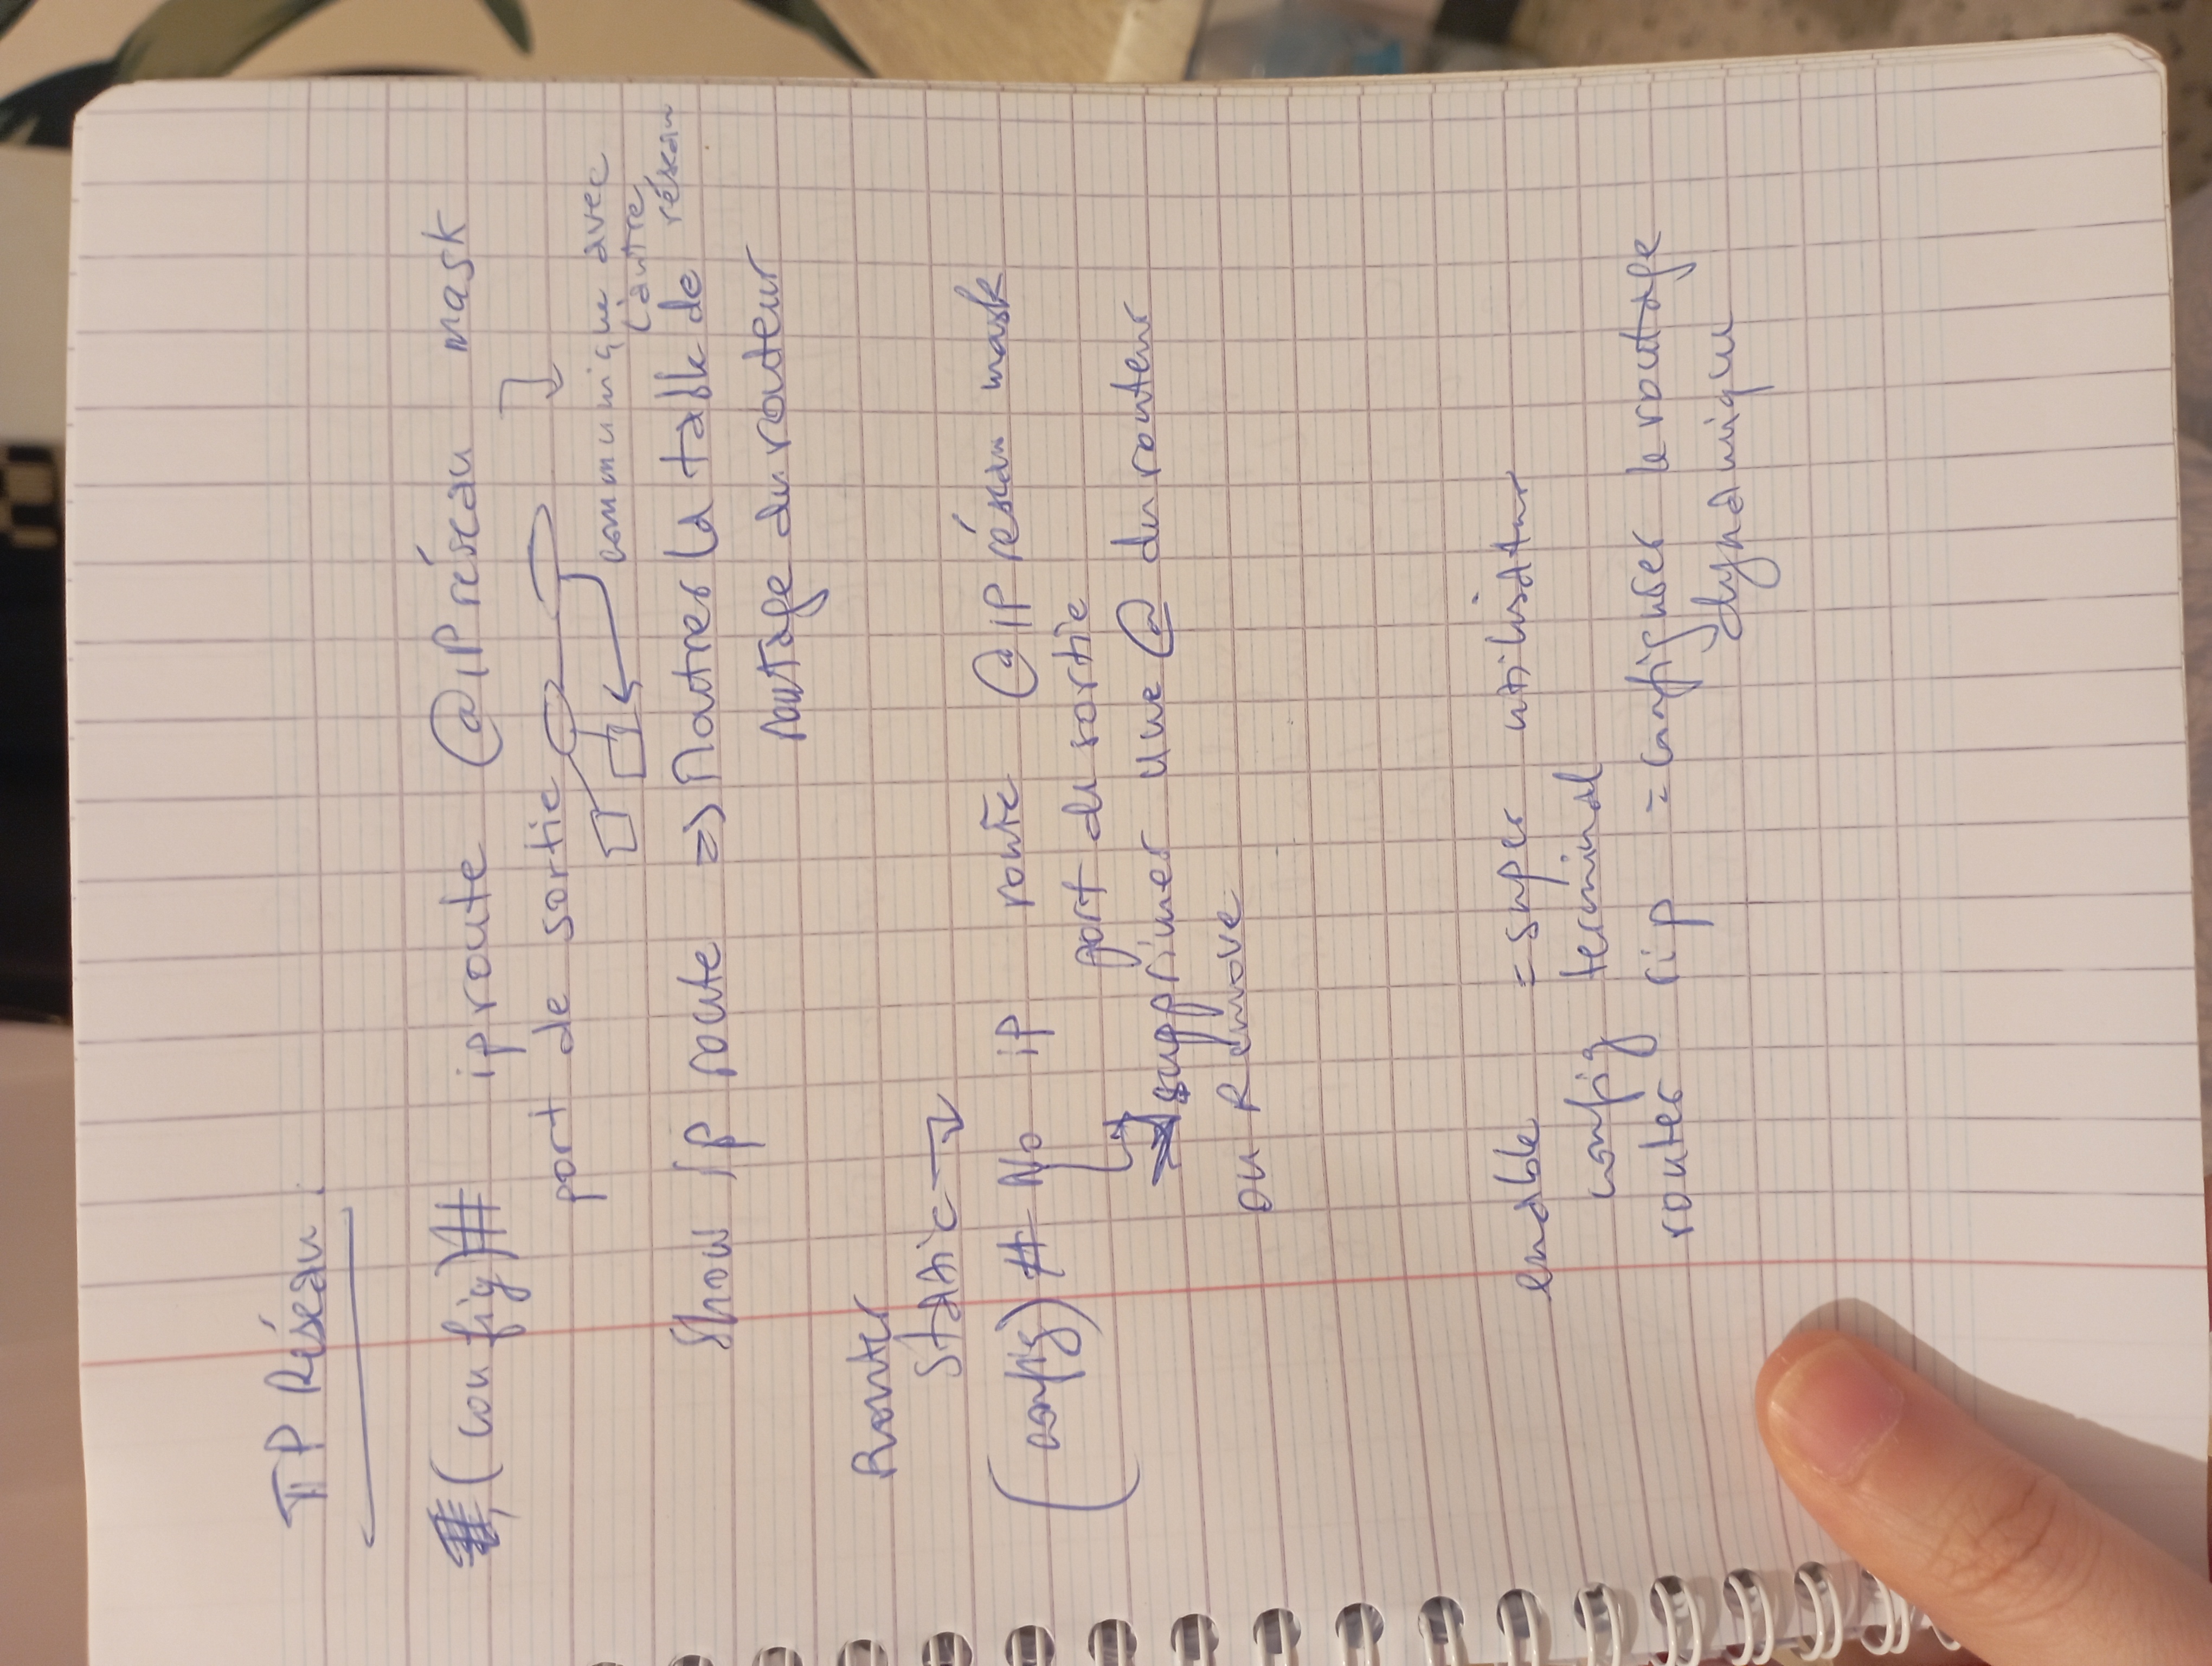 TP Réseau :
(config)# ip route @IP réseau mask
port de sortie
communique avec
l'autre
réseau
Show ip route => Montrer la table de
routage du routeur
Router
Static
(config) # No ip route @IP réseau mask
port de sortie
supprimer une @ du routeur
ou Remove
enable = super utilisateur
config terminal
router rip = configurer le routage
dynamique